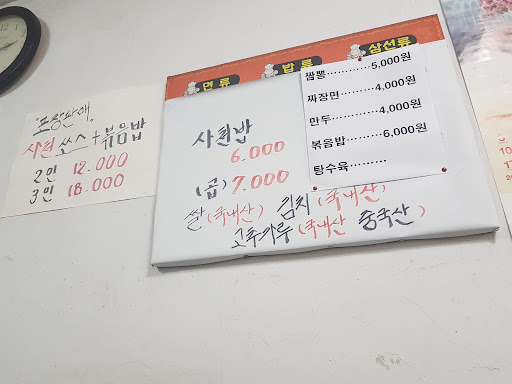 "포장판매"
사천 쏘스+볶음밥
2인 12.000
3인 18.000
면류 밥류 삼선류
사천밥
6.000
(곱) 7.000
짬뽕············5,000원
짜장면·········4,000원
만두···········4,000원
볶음밥·········6,000원
탕수육·········
쌀(국내산) 김치(국내산)
고추가루(국내산 중국산)